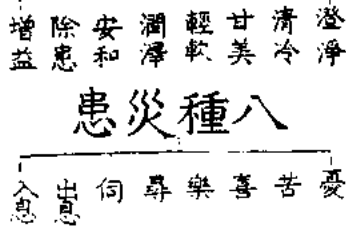 澄淨
清冷
甘美
輕軟
潤澤
安和
除患
增益
八種災患
憂
苦
喜
樂
尋
伺
出息
入息